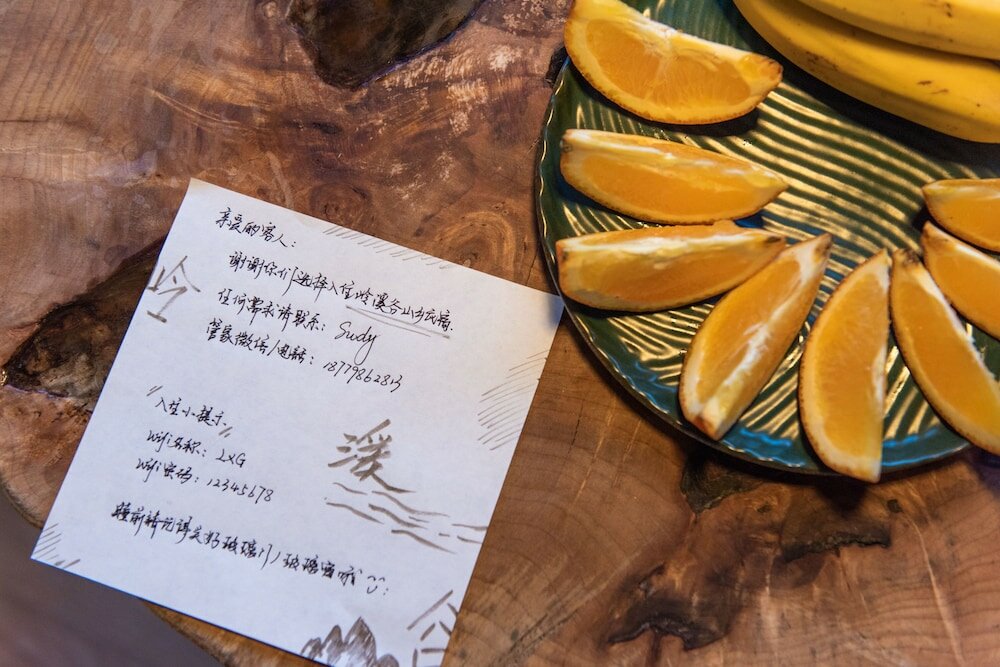 亲爱的客人：
谢谢你们选择入住岭溪谷山方民宿.
任何需求请联系：Sudy
管家微信/电话：18779862813
“入住小提示”
Wifi名称：LXG
Wifi密码：12345678
睡前请记得关好玻璃门/玻璃窗哦
岭
溪
谷